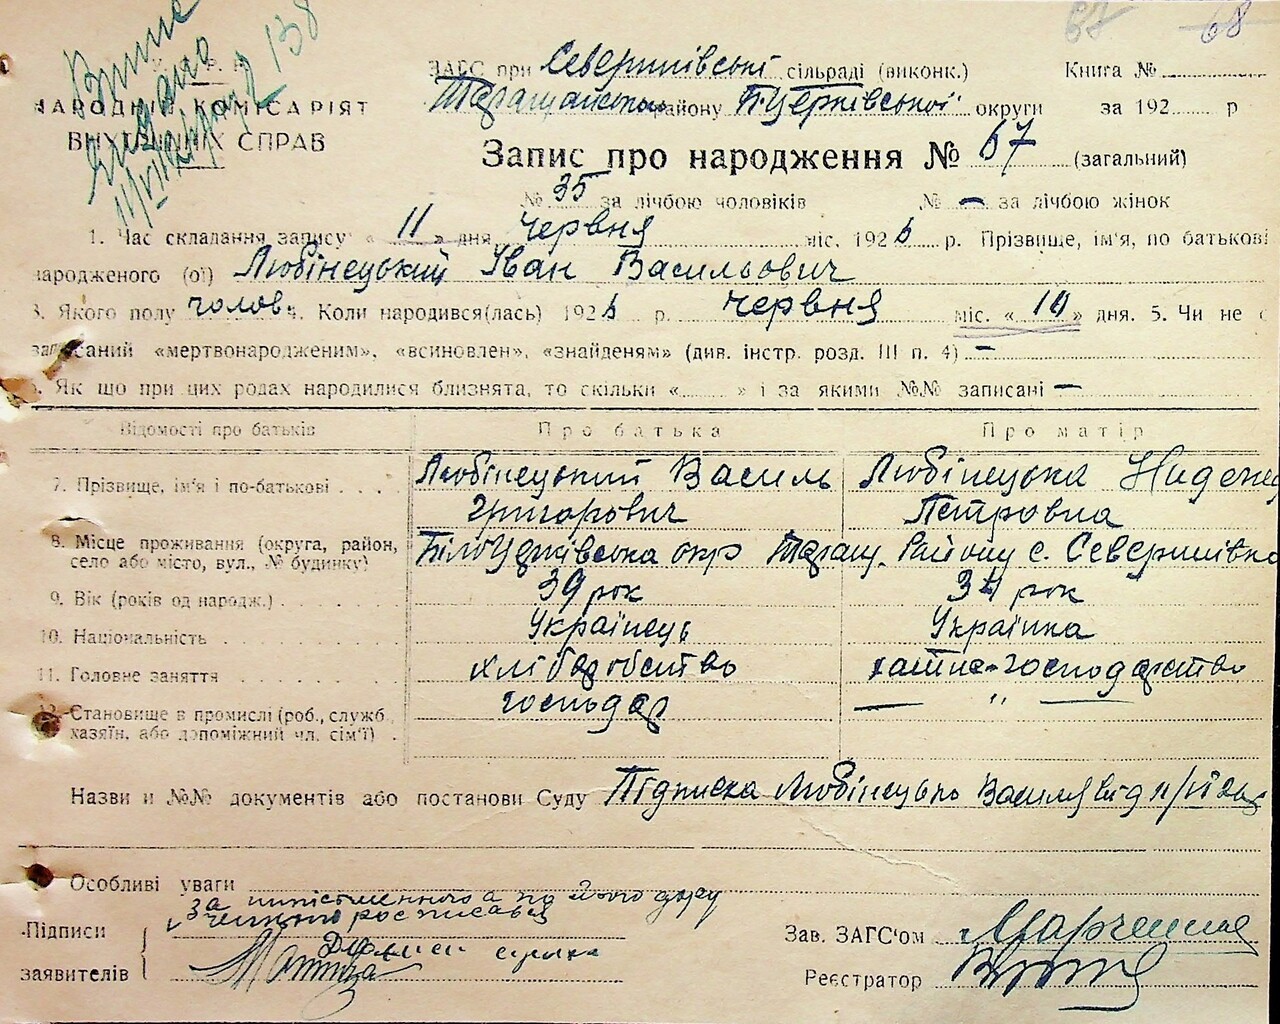 67 68
138
У. Р. Р.
НАРОДНІЙ КОМІСАРІЯТ
ВНУТРІШНІХ СПРАВ
ЗАГС при Северинівські сільраді (виконк.) Книга №
Таращанськом району Б.Церківської округи за 192 р
Запис про народження № 67 (загальний)
№ 35 за лічбою чоловіків № — за лічбою жінок
1. Час складання запису „ 11 " дня червня міс. 1926 р. Прізвище, ім'я, по батькові
народженого (ої) Любінецький Іван Васильович
3. Якого полу чолов. 4. Коли народився(лась) 1926 р. червня міс. « 10 » дня. 5. Чи не є
записаний «мертвонародженим», «всиновлен», «знайденям» (див. інстр. розд. III п. 4) —
6. Як що при цих родах народилися близнята, то скільки « » і за якими №№ записані —
Відомості про батьків Про батька Про матір
7. Прізвище, ім'я і по-батькові Любінецький Василь Любінецька
Григорович Петровна
8. Місце проживання (округа, район, БілоЦерківська окр Таращ. Району с. Северинівка
село або місто, вул., № будинку)
9. Вік (років од народж.) 39 рок 34 рок
10. Національність Українець Українка
11. Головне заняття хліборобство хатнє-господарство
12. Становище в промислі (роб., служб., господар — " —
хазяїн, або допоміжний чл. сім'ї)
Назви и №№ документів або постанови Суду Підписка Василя від 11/VI
Особливі уваги
Підписи
заявителів
Зав. ЗАГС'ом Марченко
Реєстратор